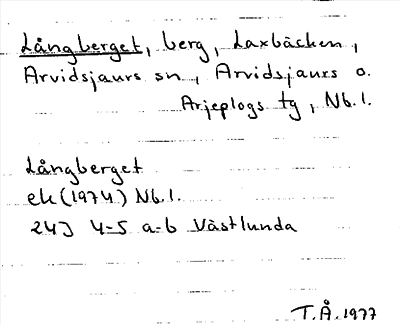 Långberget, berg, Laxbäcken,
Arvidsjaurs sn, Arvidsjaurs o.
Arjeplogs tg, Nb.l.
Långberget
ek (1974) Nb.l.
24J 4-5 a-b Västlunda
T.Å. 1977